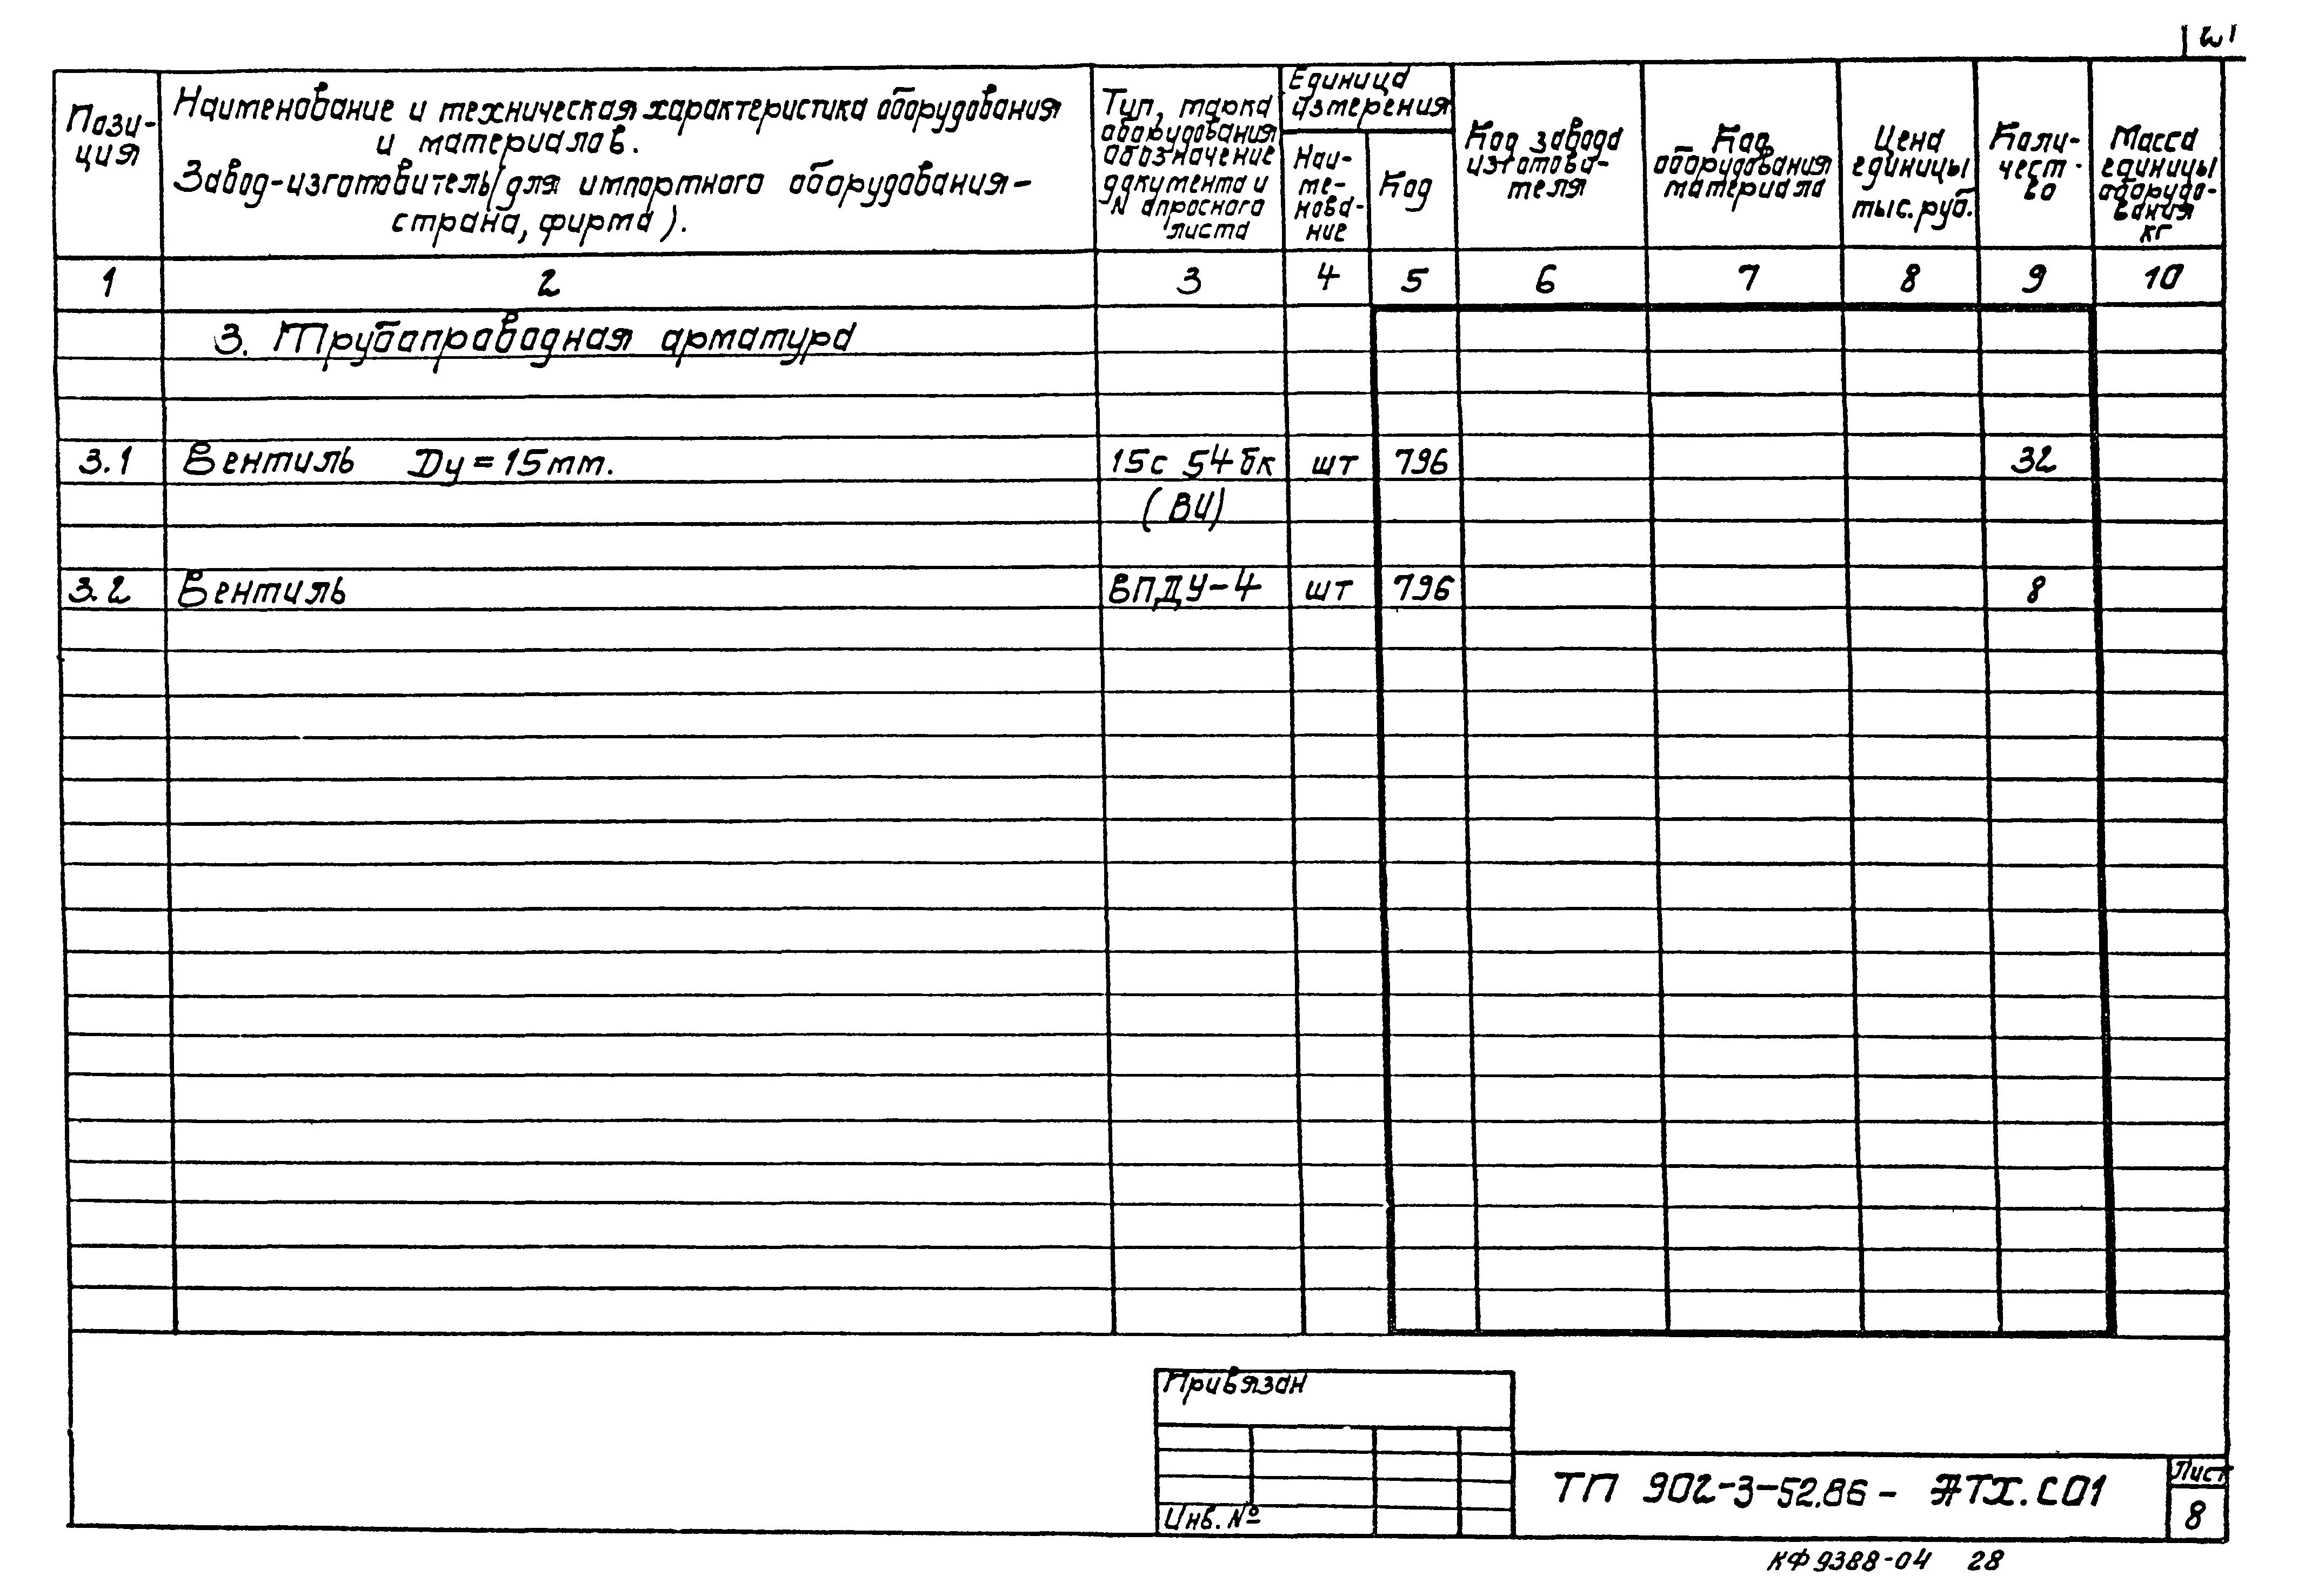 Пози-
ция
Наименование и техническая характеристика оборудования
и материалов.
Завод-изготовитель (для импортного оборудования-
страна, фирма).
Тип, марка
оборудования
обозначение
документа и
N опросного
листа
Единица
измерения
Наи-
ме-
нова-
ние
Код
Код завода
изготови-
теля
Код
оборудования
материала
Цена
единицы
тыс. руб.
Коли-
чест-
во
Масса
единицы
оборудо-
вания
кг
1 2 3 4 5 6 7 8 9 10
3. Трубопроводная арматура
3.1 Вентиль Ду=15мм. 15с 54бк шт 796 32
(ВИ)
3.2 Вентиль ВПДУ-4 шт 796 8
Привязан
Инв. №
ТП 902-3-52.86 - АТХ.СО1
Лист
8
КФ 9388-04 28